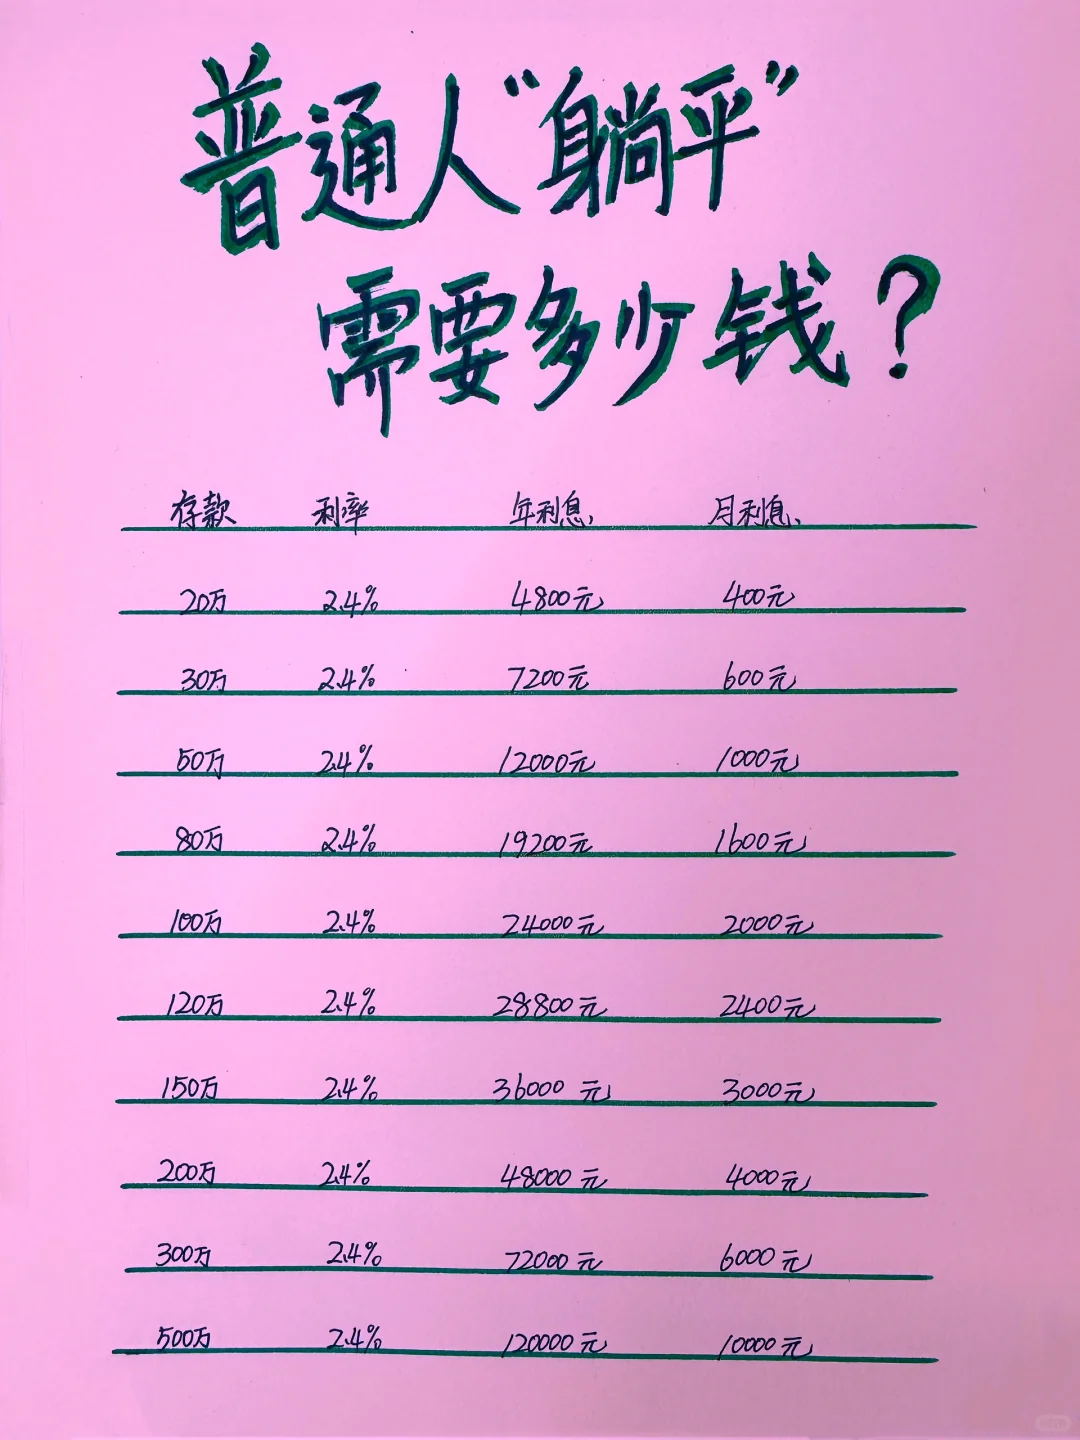 普通人“躺平”
需要多少钱？
存款 利率 年利息 月利息
20万 2.4% 4800元 400元
30万 2.4% 7200元 600元
50万 2.4% 12000元 1000元
80万 2.4% 19200元 1600元
100万 2.4% 24000元 2000元
120万 2.4% 28800元 2400元
150万 2.4% 36000元 3000元
200万 2.4% 48000元 4000元
300万 2.4% 72000元 6000元
500万 2.4% 120000元 10000元